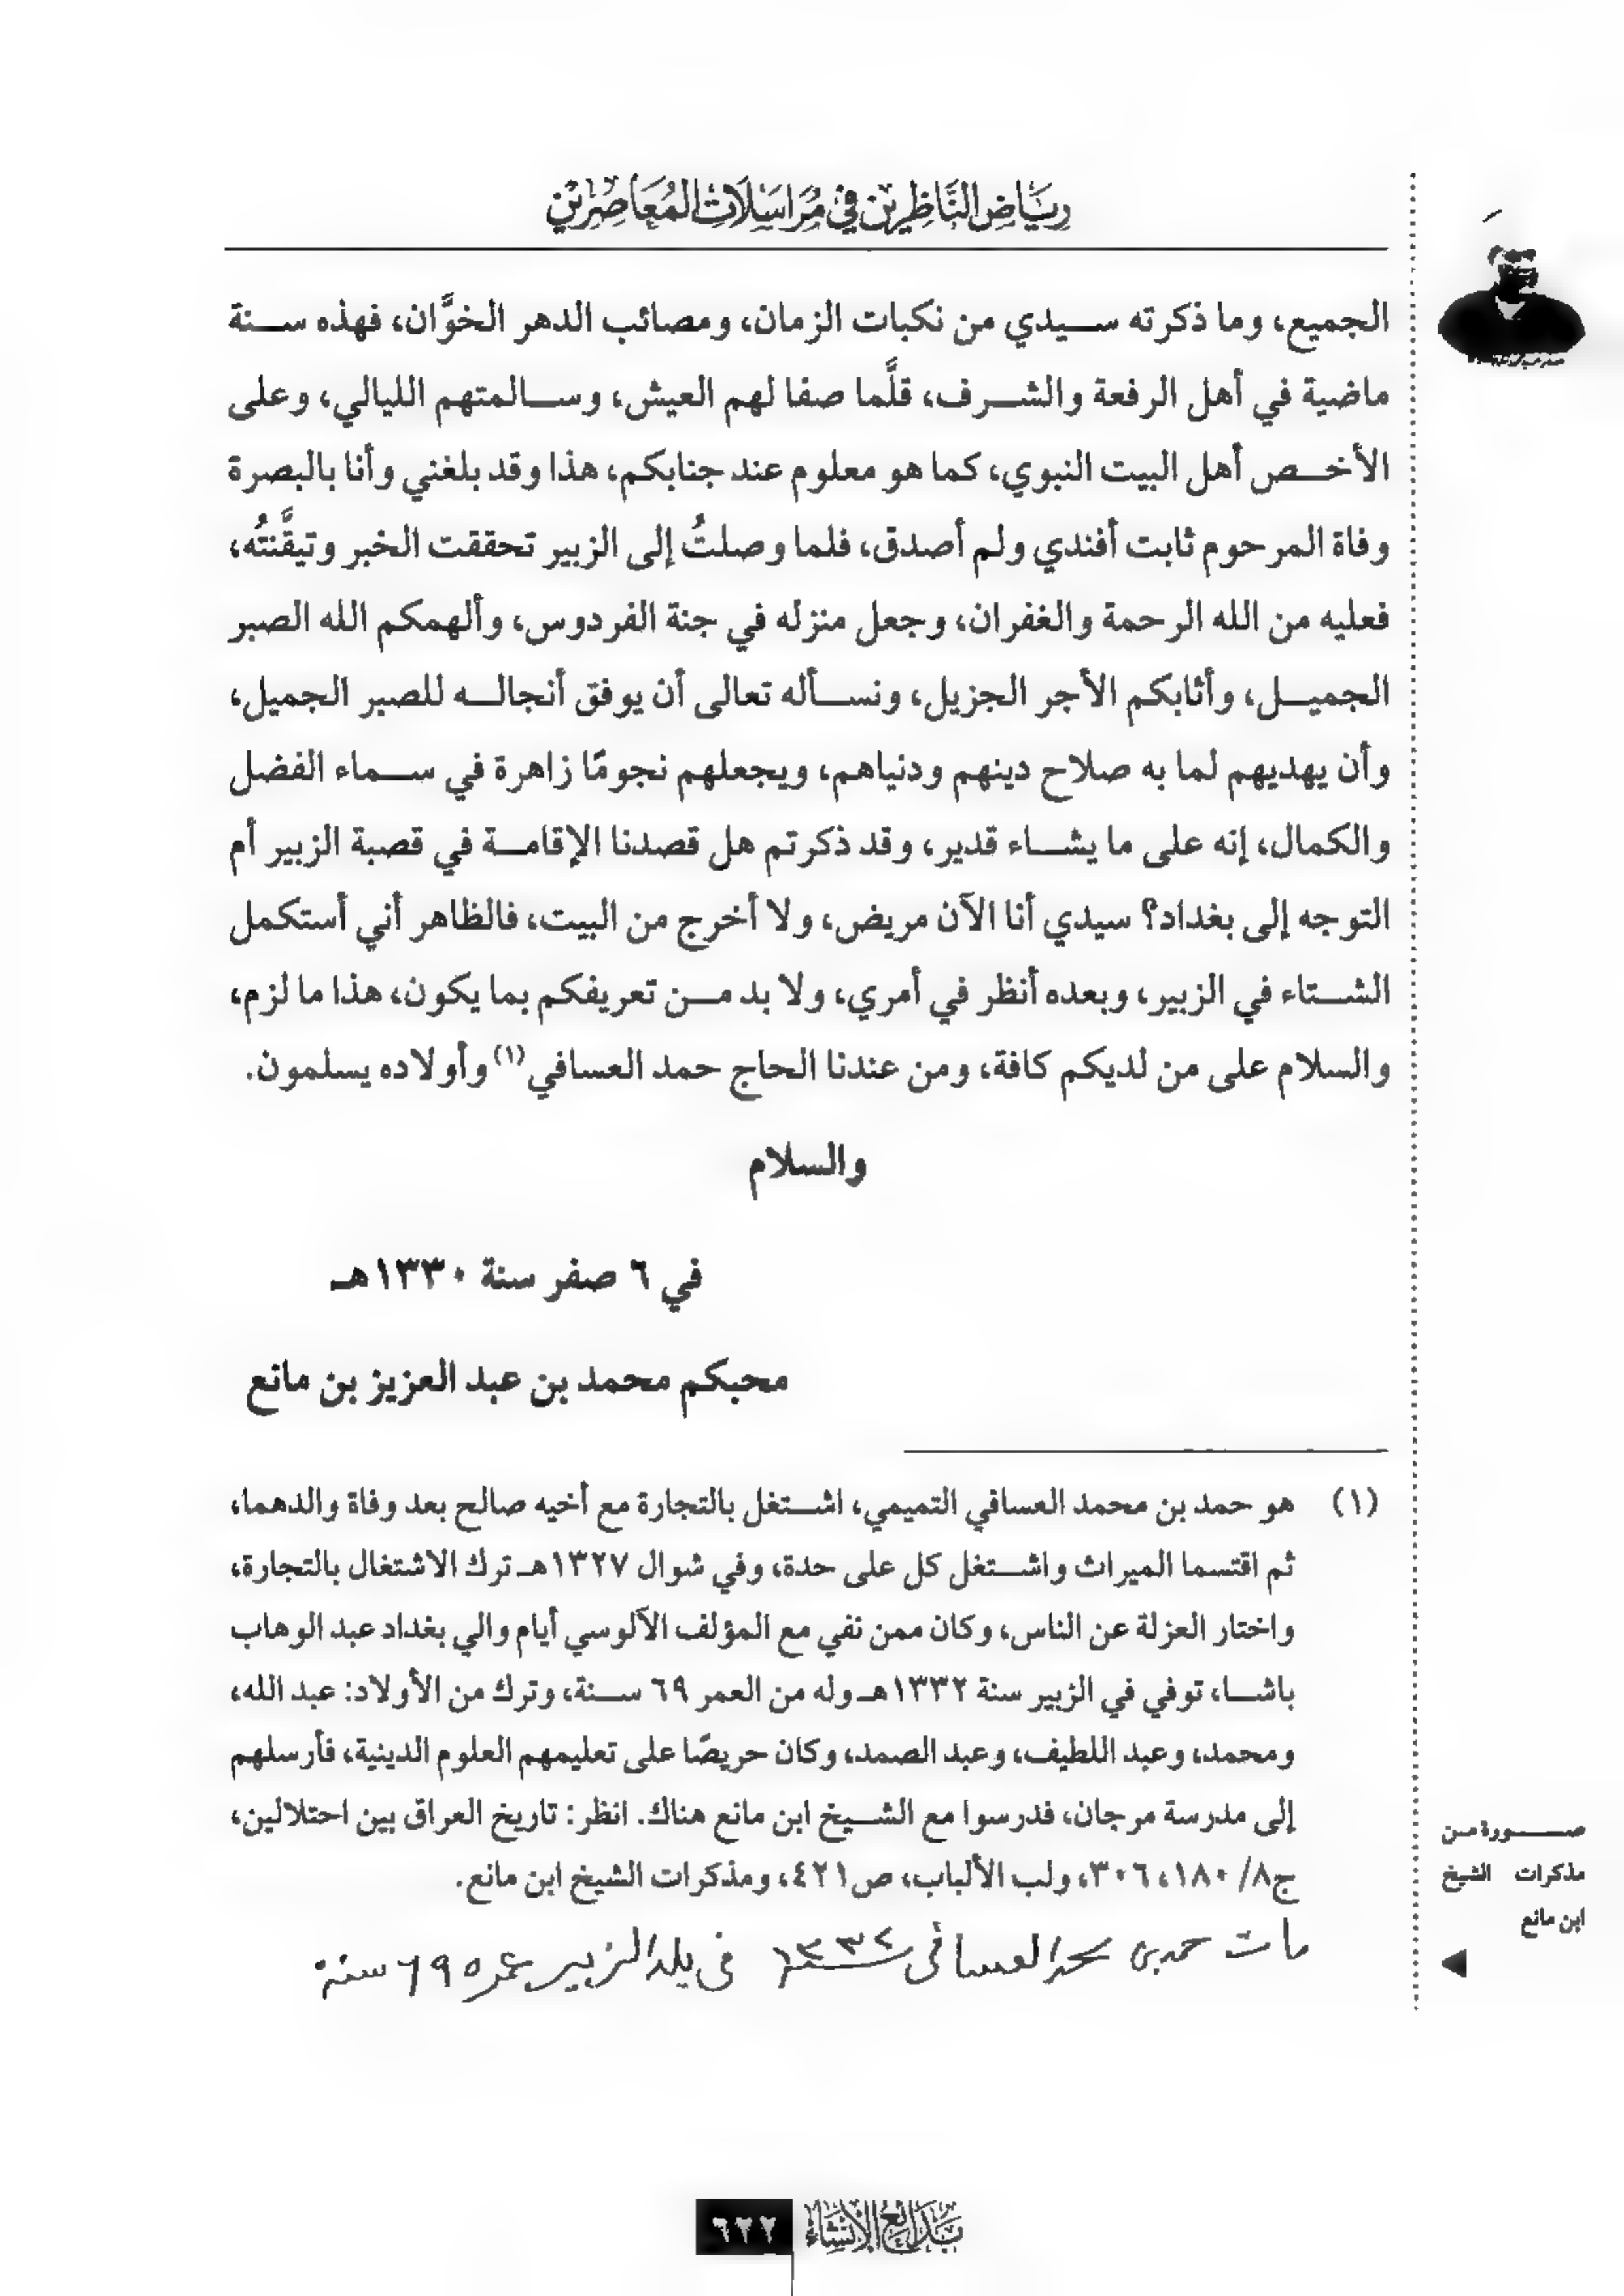 رياض الناظرين في مراسلات المعاصرين
الجميع، وما ذكرته سيدي من نكبات الزمان، ومصائب الدهر الخوَّان، فهذه سنة
ماضية في أهل الرفعة والشرف، قلَّما صفا لهم العيش، وسالمتهم الليالي، وعلى
الأخص أهل البيت النبوي، كما هو معلوم عند جنابكم، هذا وقد بلغني وأنا بالبصرة
وفاة المرحوم ثابت أفندي ولم أصدق، فلما وصلتُ إلى الزبير تحققت الخبر وتيقَّنتُه،
فعليه من الله الرحمة والغفران، وجعل منزله في جنة الفردوس، وألهمكم الله الصبر
الجميل، وأثابكم الأجر الجزيل، ونسأله تعالى أن يوفق أنجاله للصبر الجميل،
وأن يهديهم لما به صلاح دينهم ودنياهم، ويجعلهم نجومًا زاهرة في سماء الفضل
والكمال، إنه على ما يشاء قدير، وقد ذكرتم هل قصدنا الإقامة في قصبة الزبير أم
التوجه إلى بغداد؟ سيدي أنا الآن مريض، ولا أخرج من البيت، فالظاهر أني أستكمل
الشتاء في الزبير، وبعده أنظر في أمري، ولا بد من تعريفكم بما يكون، هذا ما لزم،
والسلام على من لديكم كافة، ومن عندنا الحاج حمد العسافي(١) وأولاده يسلمون.
والسلام
في ٦ صفر سنة ١٣٣٠هـ
محبكم محمد بن عبد العزيز بن مانع
(١) هو حمد بن محمد العسافي التميمي، اشتغل بالتجارة مع أخيه صالح بعد وفاة والدهما،
ثم اقتسما الميراث واشتغل كل على حدة، وفي شوال ١٣٢٧هـ ترك الاشتغال بالتجارة،
واختار العزلة عن الناس، وكان ممن نفي مع المؤلف الآلوسي أيام والي بغداد عبد الوهاب
باشا، توفي في الزبير سنة ١٣٣٢هـ وله من العمر ٦٩ سنة، وترك من الأولاد: عبد الله،
ومحمد، وعبد اللطيف، وعبد الصمد، وكان حريصًا على تعليمهم العلوم الدينية، فأرسلهم
إلى مدرسة مرجان، فدرسوا مع الشيخ ابن مانع هناك. انظر: تاريخ العراق بين احتلالين،
ج٨/ ١٨٠، ٣٠٦، ولب الألباب، ص٤٢١، ومذكرات الشيخ ابن مانع.
صورة من
مذكرات الشيخ
ابن مانع
مات حمد بن محمد العسافي ١٣٣٢ في بلد الزبير عمره ٦٩ سنة
بدائع الإنشاء ٦٢٢